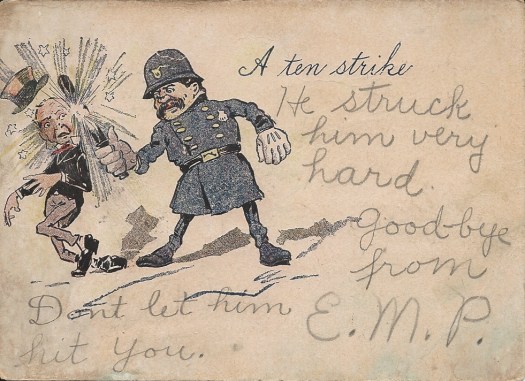 A ten strike
He struck
him very
hard.
Good-bye
from
E. M. P.
Dont let him
hit you.